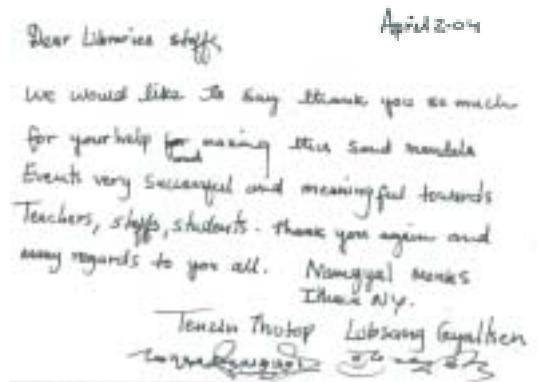 April 2-04
Dear Libraries staffs,
We would like to say thank you so much
for your help for making this sand mandala
and
Events very successful and meaningful towards
Teachers, staffs, students. Thank you again and
many regards to you all. Namgyal Monks
Ithaca NY.
Tenzin Thutop Lobsang Gyaltsen